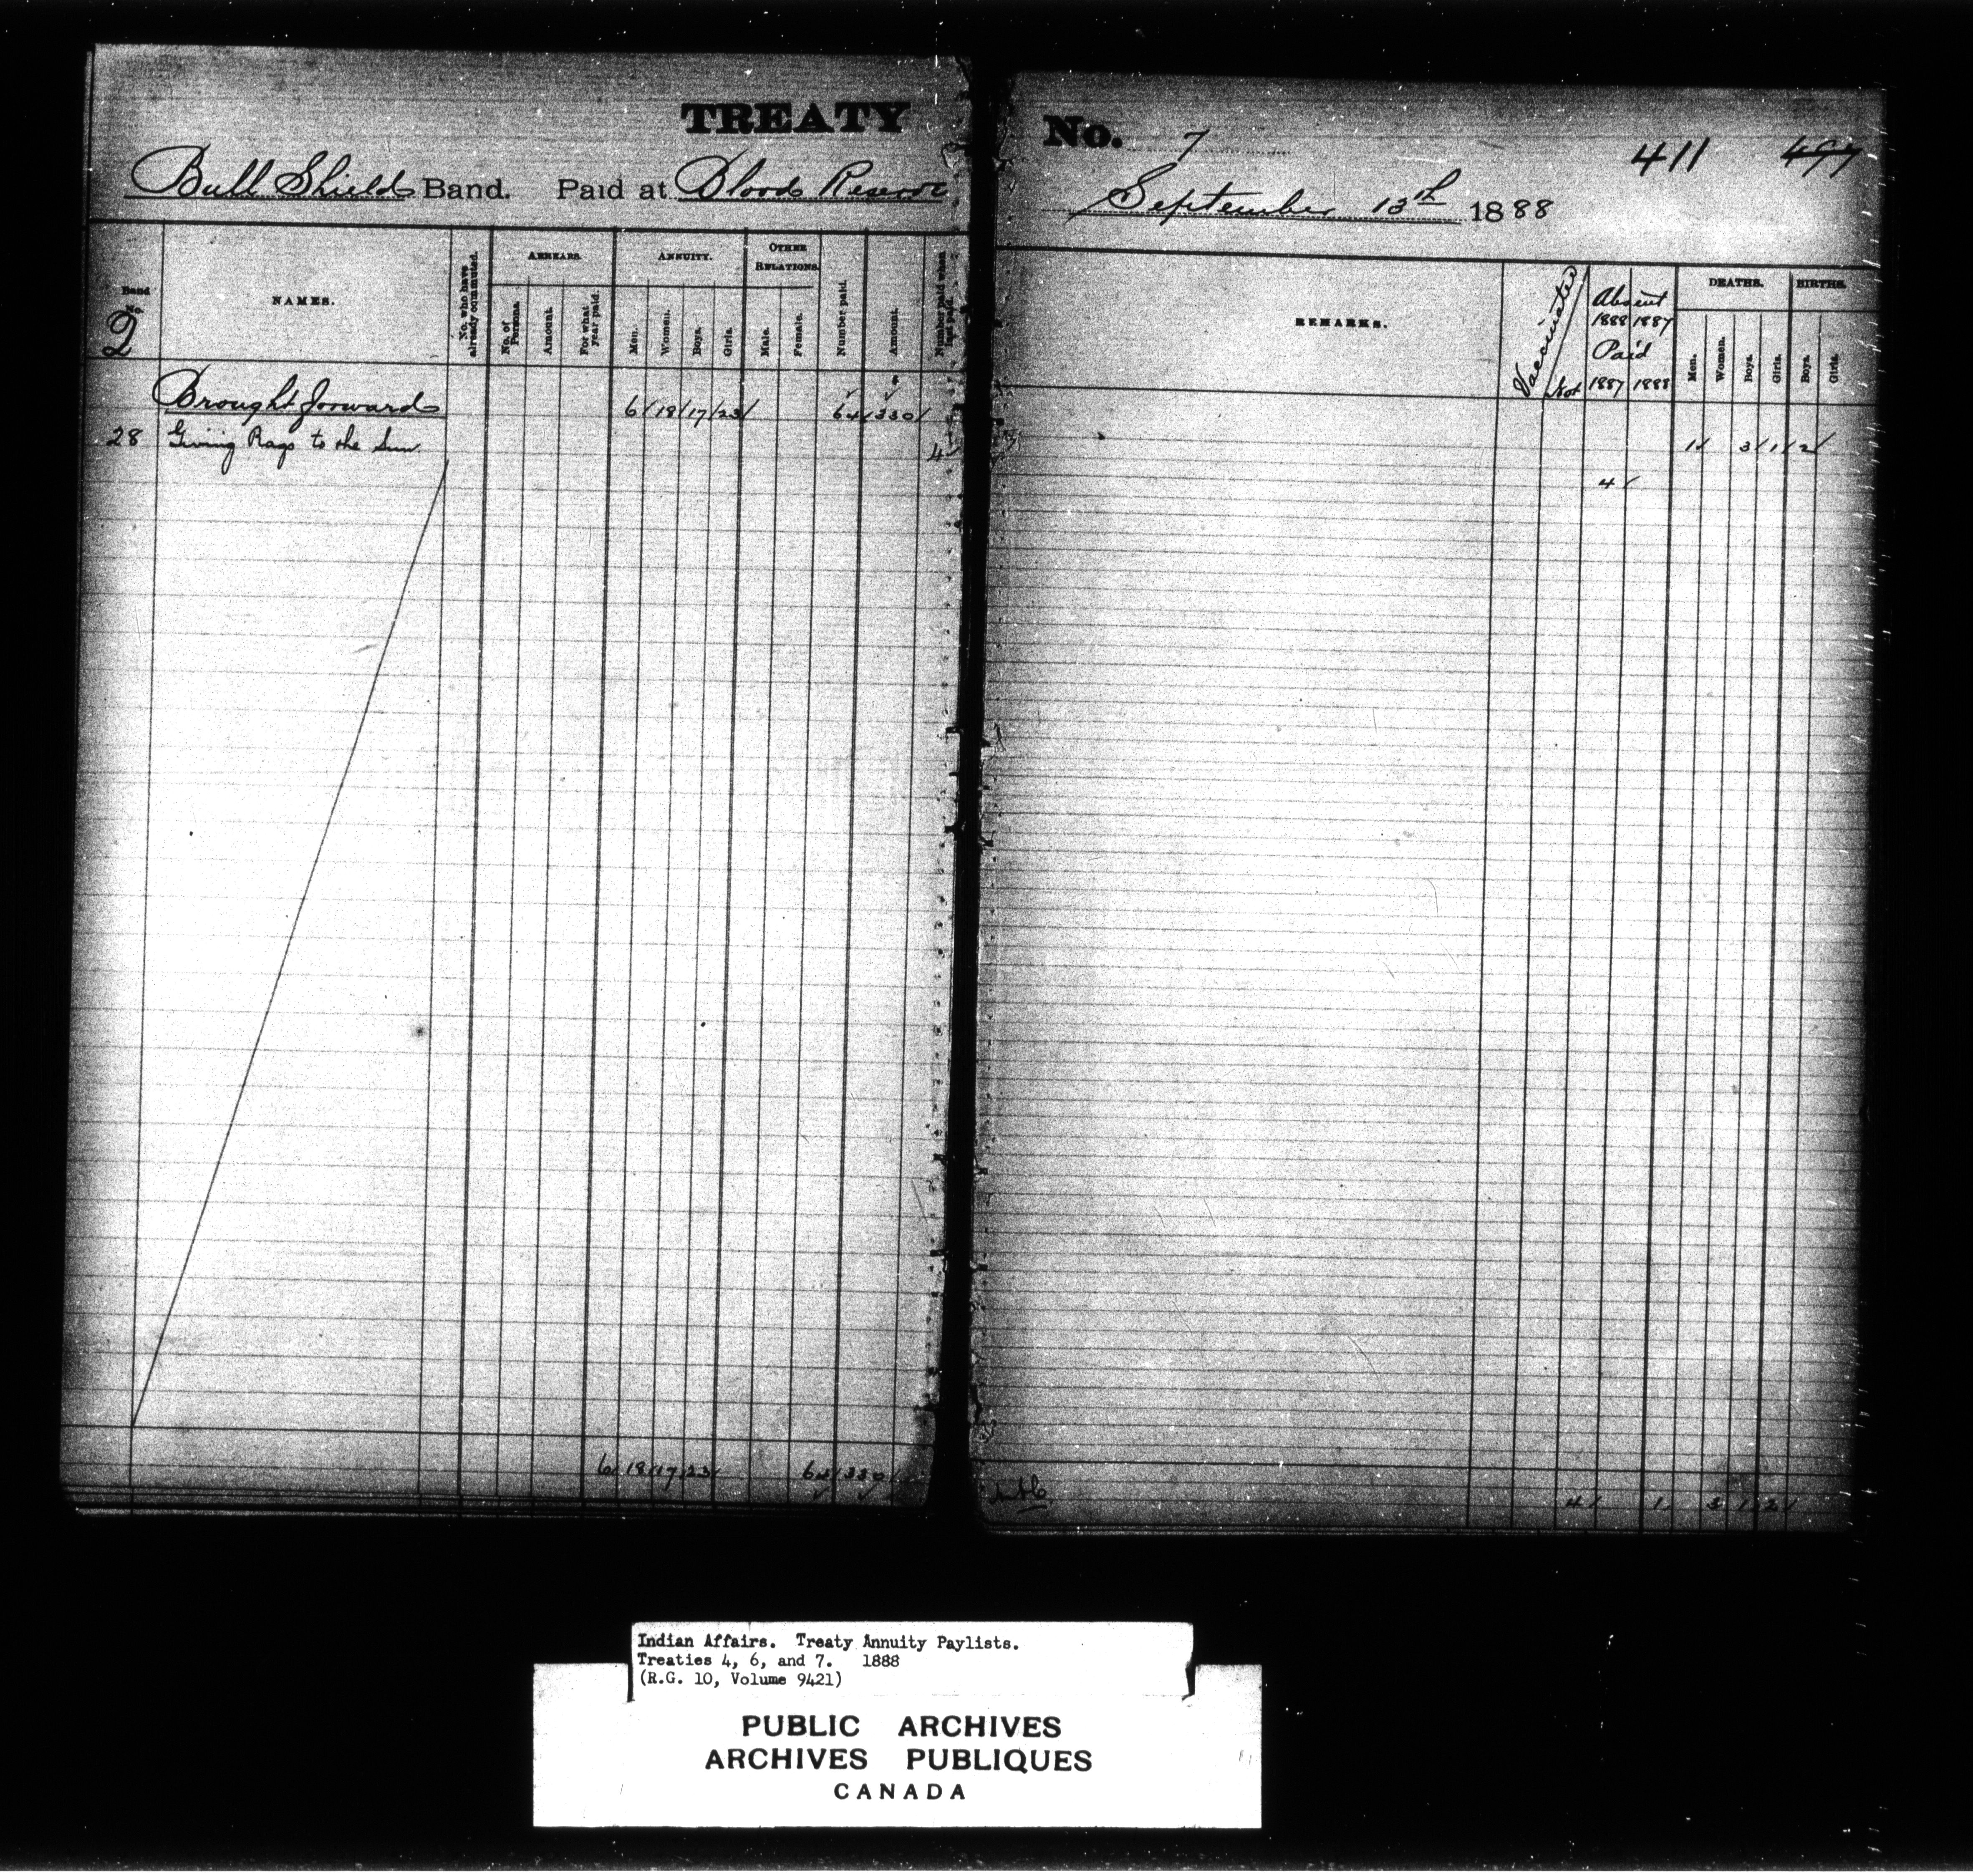 TREATY No. 7
411 497
Bull Shields Band. Paid at Blood Reserve September 13th 1888
Band No.
2
NAMES.
No. who have already commuted.
ARREARS.
No. of Persons.
Amount.
For what year paid.
ANNUITY.
Men.
Women.
Boys.
Girls.
OTHER RELATIONS.
Male.
Female.
Number paid.
Amount.
Number paid when last paid.
REMARKS.
Vaccinated
Not
Absent
1888 1887
Paid
1887 1888
DEATHS.
Men.
Women.
Boys.
Girls.
BIRTHS.
Boys.
Girls.
Brought forward 6 18 17 23 64 330
28 Giving Rags to the Sun 4 1 3 1 2
4
6 18 17 23 64 330 4 1 3 1 2
Indian Affairs. Treaty Annuity Paylists.
Treaties 4, 6, and 7. 1888
(R.G. 10, Volume 9421)
PUBLIC ARCHIVES
ARCHIVES PUBLIQUES
CANADA